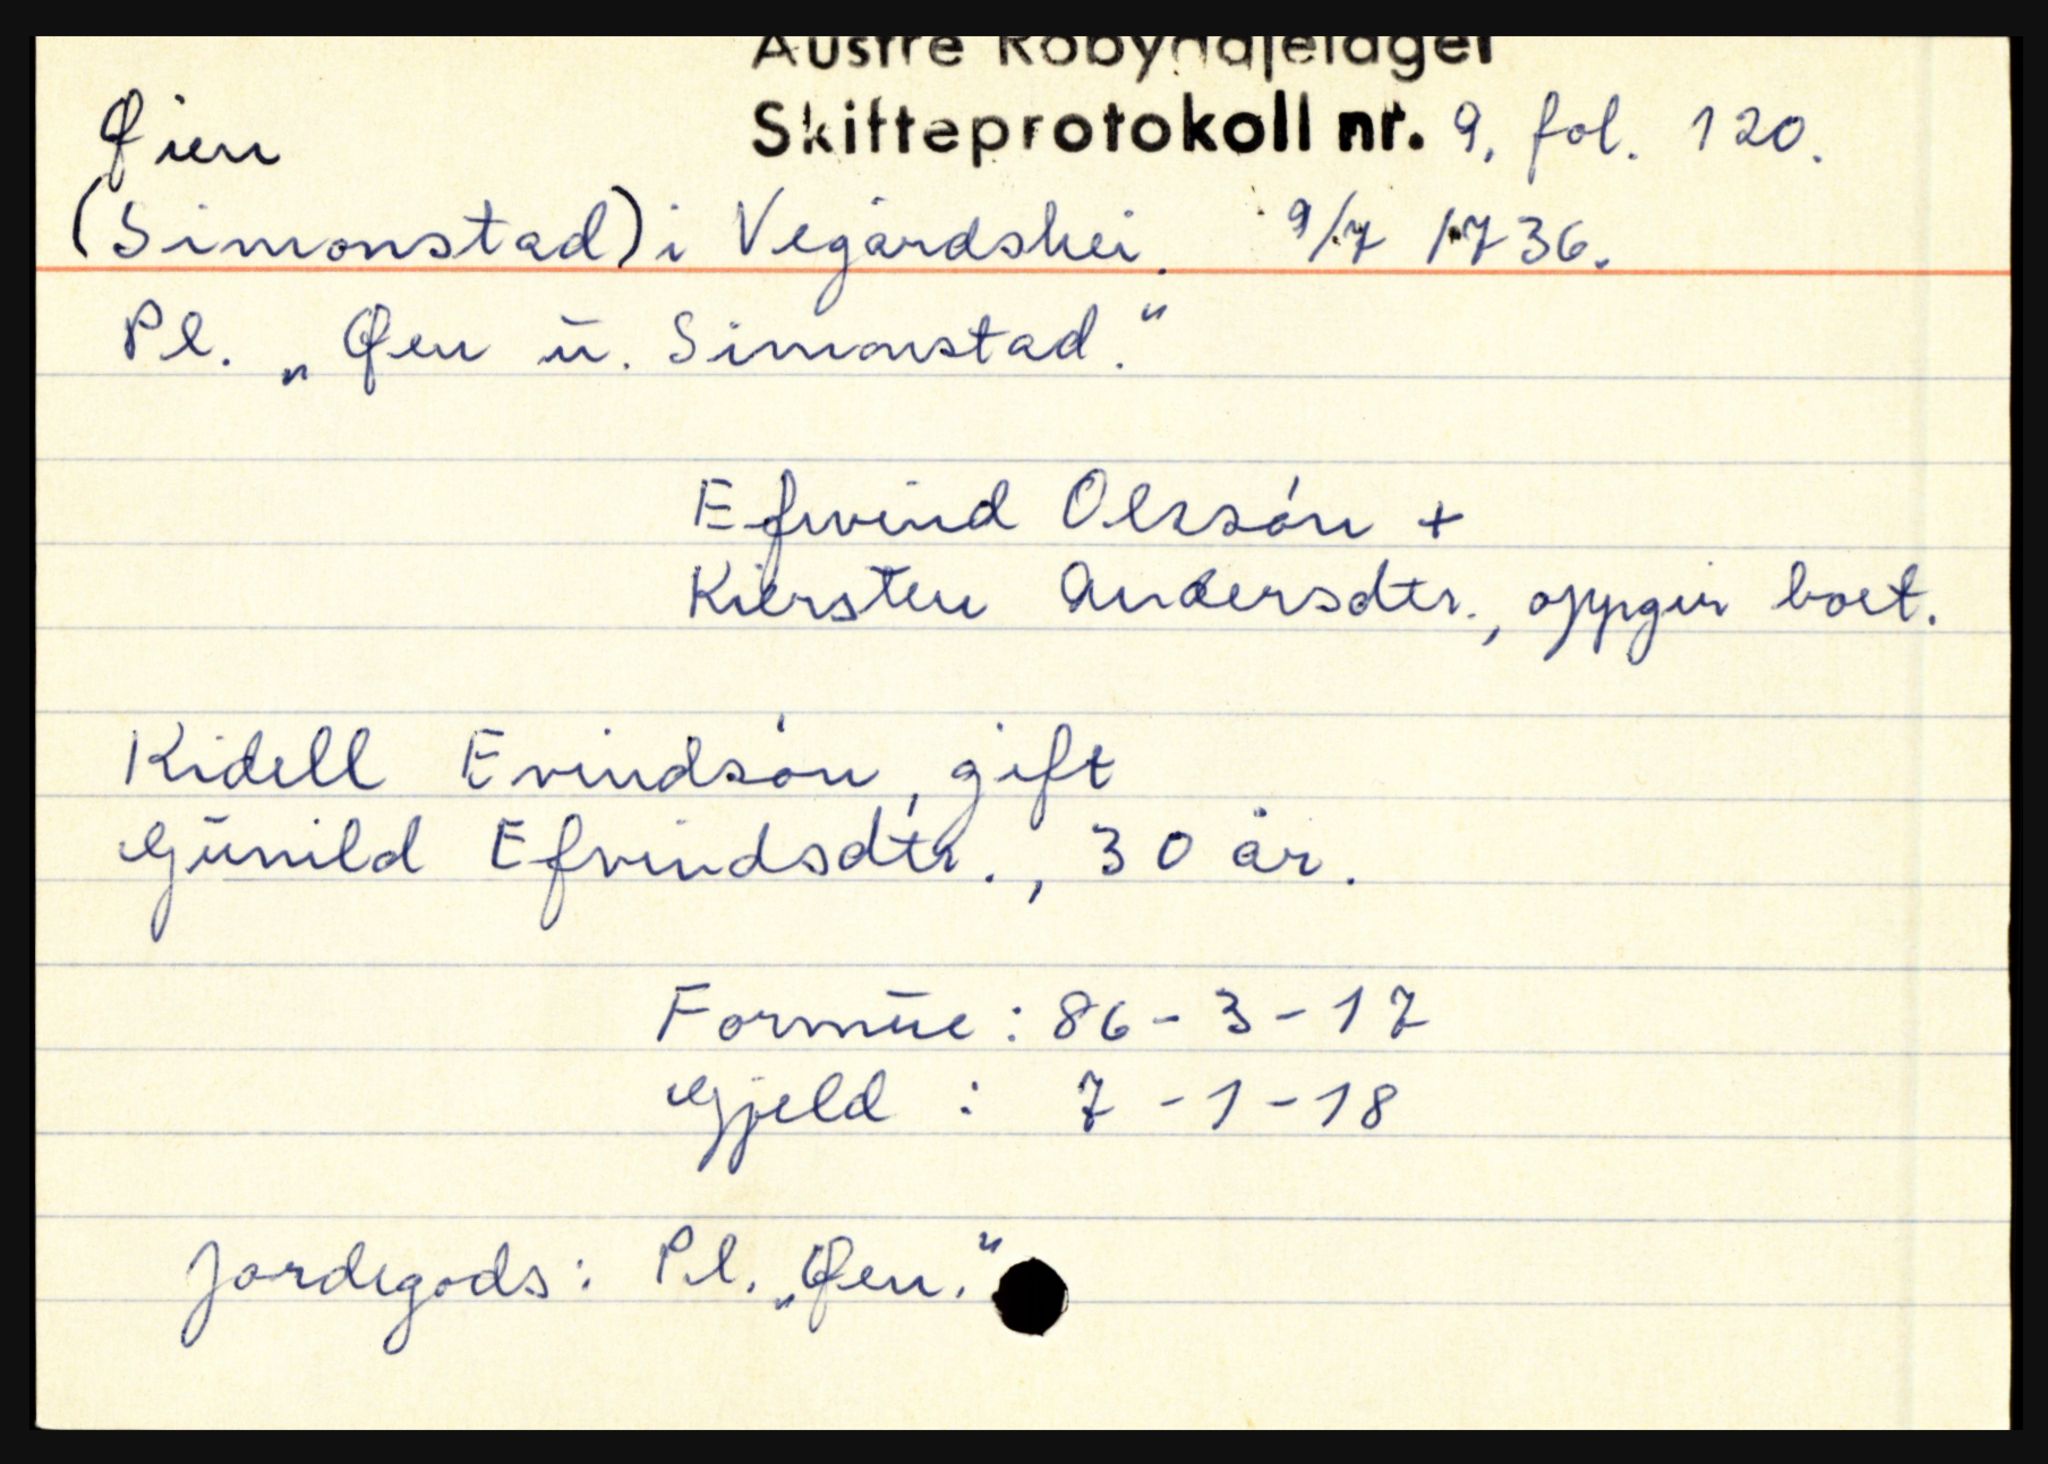 Austre Robyndjelaget
Øien Skifteprotokoll nr. 9, fol. 120.
(Simonstad) i Vegårdshei. 9/7 1736.
Pl. „Øen ū. Simonstad.“
Efwind Olssón +
Kiersten Andersdtr., oppgir boet.
Kidell Evindsón, gift
Gūnild Efvindsdtr., 30 år.
Formūe: 86-3-17
Gjeld : 7-1-18
Jordegods: Pl. „Øen.“